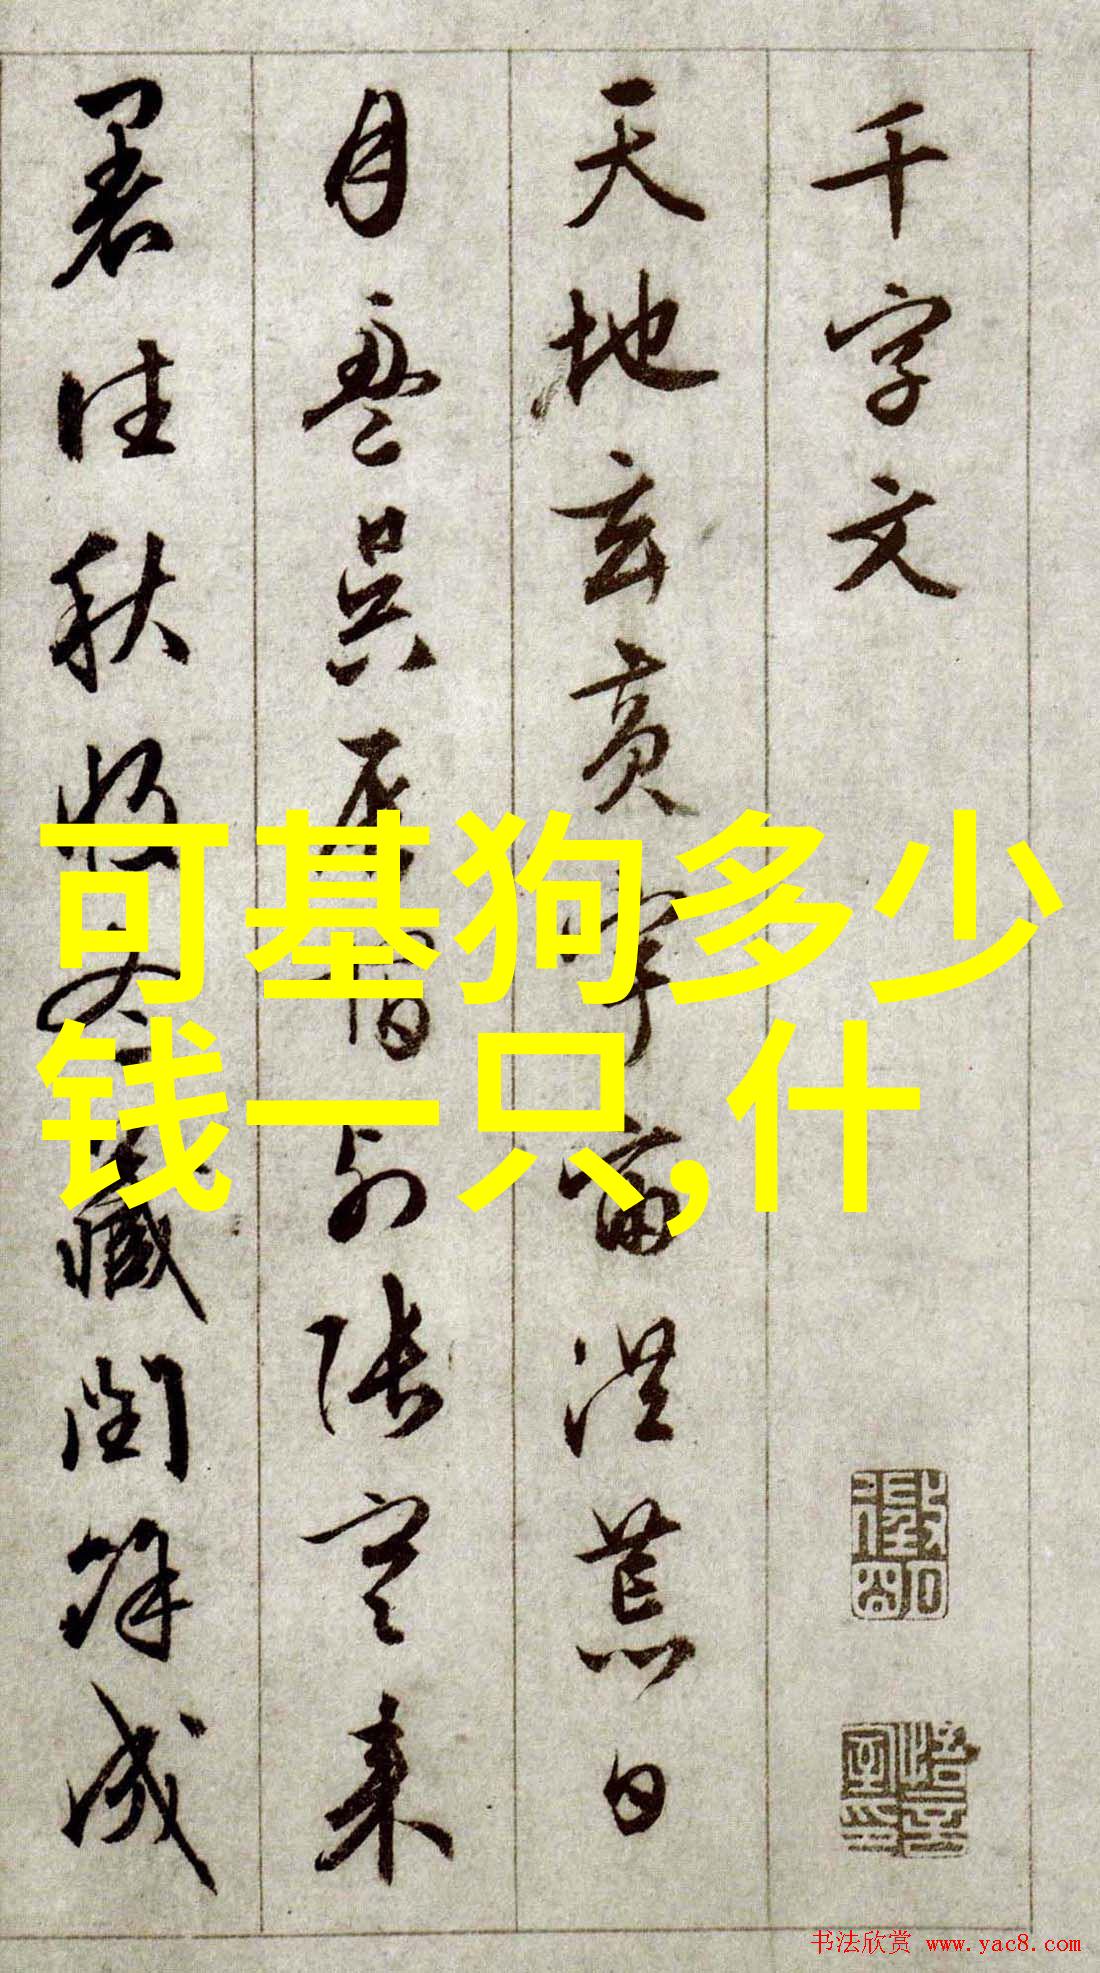 千字文
天地玄黃宇宙洪荒日
月盈昃辰宿列張寒來
暑往秋收冬藏閏餘成
可基狗多少
钱一只,什
书法欣赏 www.yac8.com